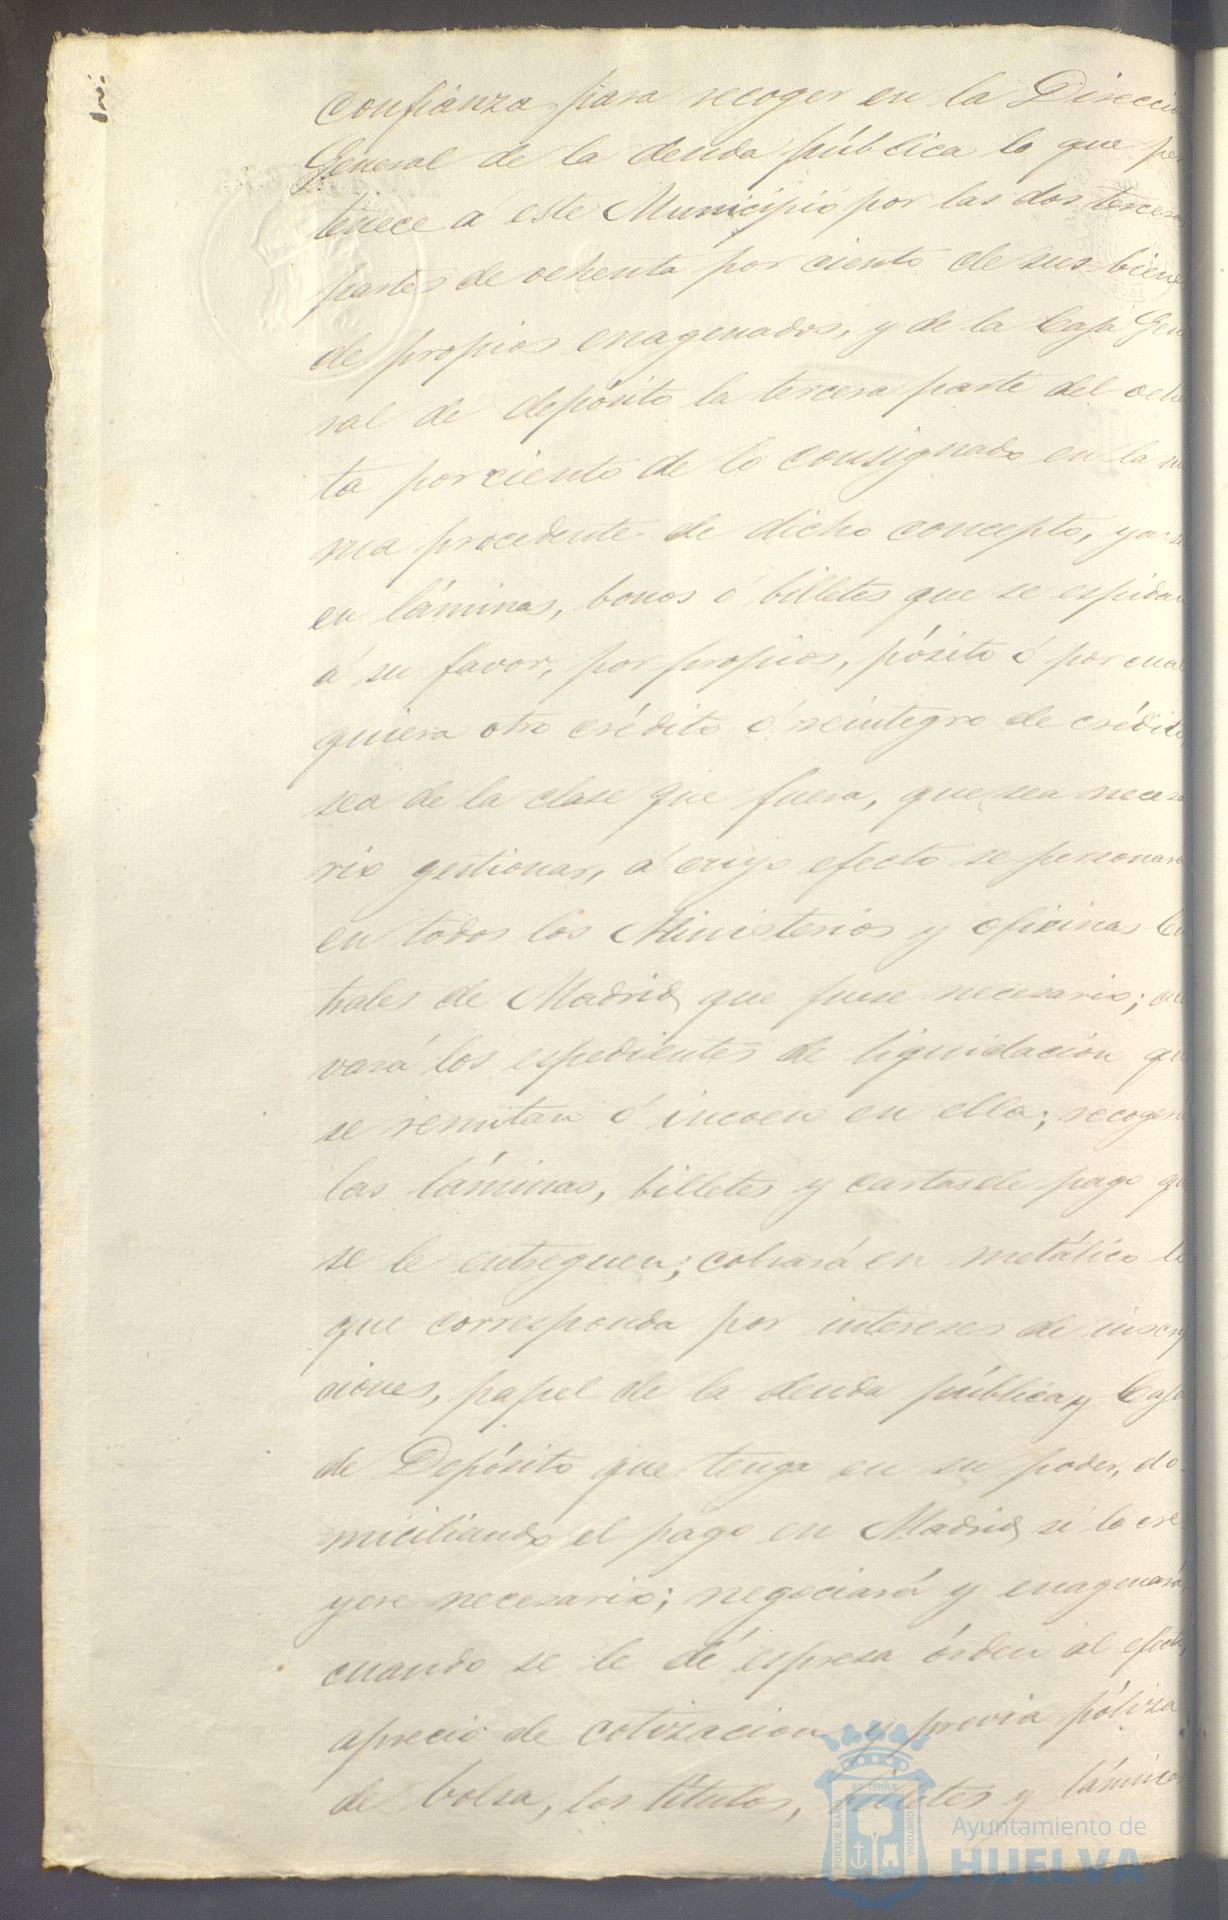 confianza para recoger en la Direcció
General de la deuda pública lo que per
tenece á este Municipio por las dos terceras
partes de ochenta por ciento de sus biene
de propios enagenados, y de la Caja Gene
ral de depósito la tercera parte del oche
ta por ciento de lo consignado en la m
ma procedente de dicho concepto, ya se
en láminas, bonos ó billetes que se espidan
á su favor, por propios, pósito ó por cual
quiera otro crédito ó reintegro de crédito,
sea de la clase que fuera, que sea necesa
rio gestionar, á cuyo efecto se personará
en todos los Ministerios y oficinas Ce
trales de Madrid que fuese necesario;
vará los espedientes de liquidacion qu
se remitan ó incoen en ella; recogerá
las láminas, billetes y cartas de pago qu
se le entreguen; cobrará en metálico lo
que corresponda por intereses de inscrip
ciones, papel de la deuda pública y Caja
de Depósito que tenga en su poder, do-
miciliando el pago en Madrid si lo cre-
yere necesario; negociará y enagenará,
cuando se le dé espresa órden al efecto,
aprecio de cotizacion y previa póliza
de bolsa, los títulos, billetes y láminas
PORTUS MARIS ET TERRÆ CUSTODIA
Ayuntamiento de
HUELVA